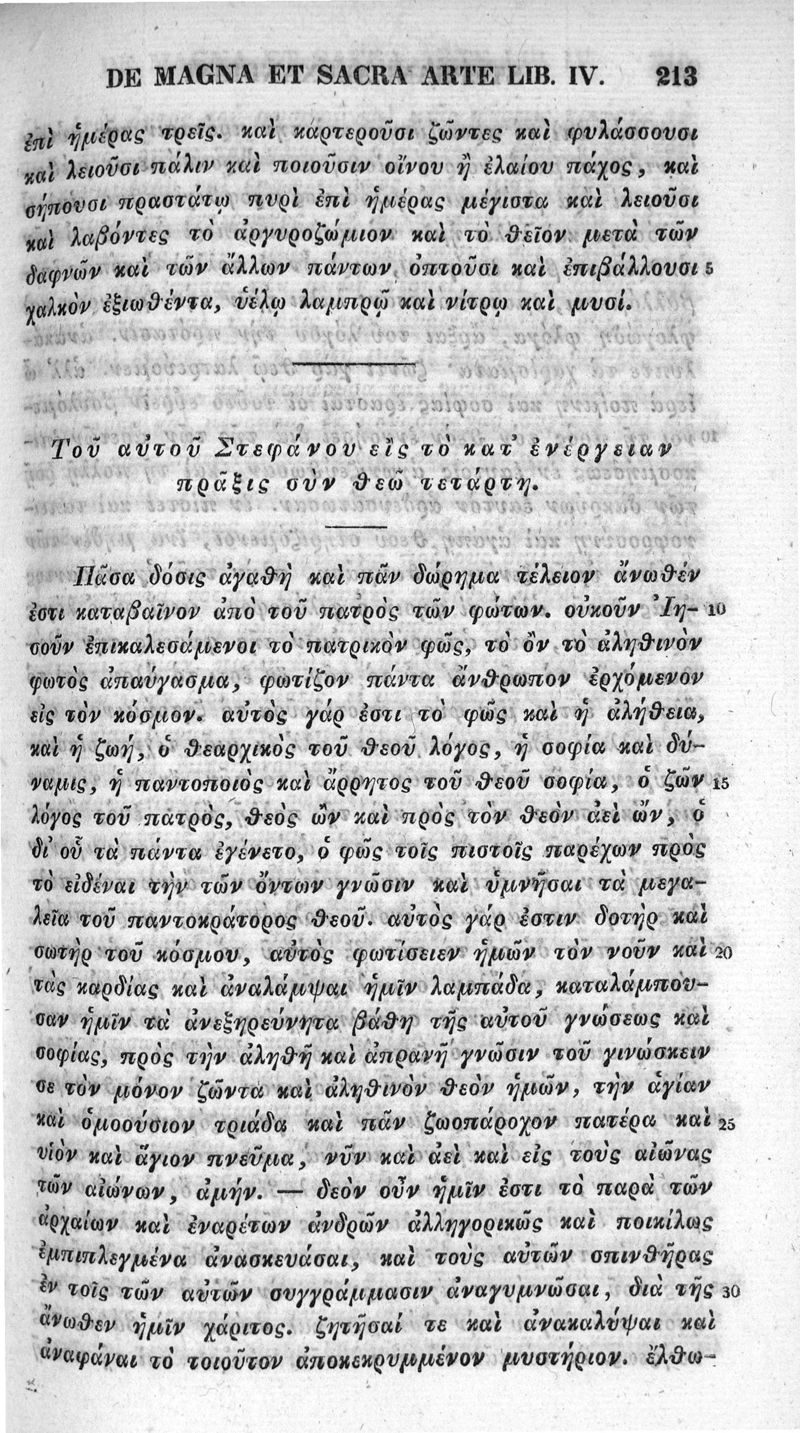 DE MAGNA ET SACRA ARTE LIB. IV. 213
ἐπὶ ἡμέρας τρεῖς. καὶ καρτεροῦσι ζῶντες καὶ φυλάσσουσι
καὶ λειοῦσι πάλιν καὶ ποιοῦσιν οἴνου ἢ ἐλαίου πάχος, καὶ
σήπουσι πραστάτῳ πυρὶ ἐπὶ ἡμέρας μέγιστα καὶ λειοῦσι
καὶ λαβόντες τὸ ἀργυροζώμιον καὶ τὸ θεῖον μετὰ τῶν
δαφνῶν καὶ τῶν ἄλλων πάντων ὀπτοῦσι καὶ ἐπιβάλλουσι 5
χαλκὸν ἐξιωθέντα, ὑέλῳ λαμπρῷ καὶ νίτρῳ καὶ μυσί.
Τοῦ αὐτοῦ Στεφάνου εἰς τὸ κατ᾽ ἐνέργειαν
πρᾶξις σὺν θεῶ τετάρτη.
Πᾶσα δόσις ἀγαθὴ καὶ πᾶν δώρημα τέλειον ἄνωθέν
ἐστι καταβαῖνον ἀπὸ τοῦ πατρὸς τῶν φώτων. οὐκοῦν Ἰη- 10
σοῦν ἐπικαλεσάμενοι τὸ πατρικὸν φῶς, τὸ ὂν τὸ ἀληθινὸν
φωτὸς ἀπαύγασμα, φωτίζον πάντα ἄνθρωπον ἐρχόμενον
εἰς τὸν κόσμον. αὐτὸς γάρ ἐστι τὸ φῶς καὶ ἡ ἀλήθεια,
καὶ ἡ ζωή, ὁ θεαρχικὸς τοῦ θεοῦ λόγος, ἡ σοφία καὶ δύ-
ναμις, ἡ παντοποιὸς καὶ ἄρρητος τοῦ θεοῦ σοφία, ὁ ζῶν 15
λόγος τοῦ πατρὸς, θεὸς ὢν καὶ πρὸς τὸν θεὸν ἀεὶ ὤν, ὁ
δι᾽ οὗ τὰ πάντα ἐγένετο, ὁ φῶς τοῖς πιστοῖς παρέχων πρὸς
τὸ εἰδέναι τὴν τῶν ὄντων γνῶσιν καὶ ὑμνῆσαι τὰ μεγα-
λεῖα τοῦ παντοκράτορος θεοῦ. αὐτὸς γάρ ἐστιν δοτὴρ καὶ
σωτὴρ τοῦ κόσμου, αὐτὸς φωτίσειεν ἡμῶν τὸν νοῦν καὶ 20
τὰς καρδίας καὶ ἀναλάμψαι ἡμῖν λαμπάδα, καταλάμπου-
σαν ἡμῖν τὰ ἀνεξηρεύνητα βάθη τῆς αὐτοῦ γνώσεως καὶ
σοφίας, πρὸς τὴν ἀληθῆ καὶ ἀπρανῆ γνῶσιν τοῦ γινώσκειν
σε τὸν μόνον ζῶντα καὶ ἀληθινὸν θεὸν ἡμῶν, τὴν ἁγίαν
καὶ ὁμοούσιον τριάδα καὶ πᾶν ζωοπάροχον πατέρα καὶ 25
υἱὸν καὶ ἅγιον πνεῦμα, νῦν καὶ ἀεὶ καὶ εἰς τοὺς αἰῶνας
τῶν αἰώνων, ἀμήν. — δεὸν οὖν ἡμῖν ἐστι τὸ παρὰ τῶν
ἀρχαίων καὶ ἐναρέτων ἀνδρῶν ἀλληγορικῶς καὶ ποικίλως
ἐμπιπλεγμένα ἀνασκευάσαι, καὶ τοὺς αὐτῶν σπινθῆρας
ἐν τοῖς τῶν αὐτῶν συγγράμμασιν ἀναγυμνῶσαι, διὰ τῆς 30
ἄνωθεν ἡμῖν χάριτος. ζητῆσαί τε καὶ ἀνακαλύψαι καὶ
ἀναφάναι τὸ τοιοῦτον ἀποκεκρυμμένον μυστήριον. ἔλθω-